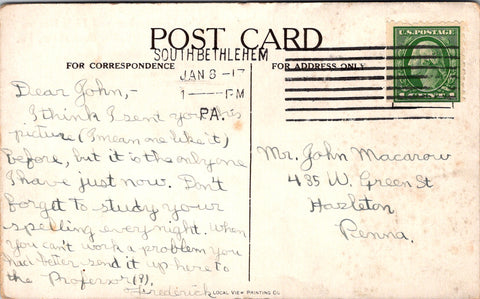 POST CARD
SOUTH BETHLEHEM
FOR CORRESPONDENCE
FOR ADDRESS ONLY
JAN 8 -17
1 — PM
PA.
U.S. POSTAGE
Dear John,-
I think I sent you this
picture (I mean one like it)
before, but it is the only one
I have just now. Don't
forget to study your
spelling every night. When
you can't work a problem you
had better send it up here to
the Professor (?).
Frederick
Mr. John Macarow
435 W. Green St
Hazleton
Penna.
LOCAL VIEW PRINTING CO